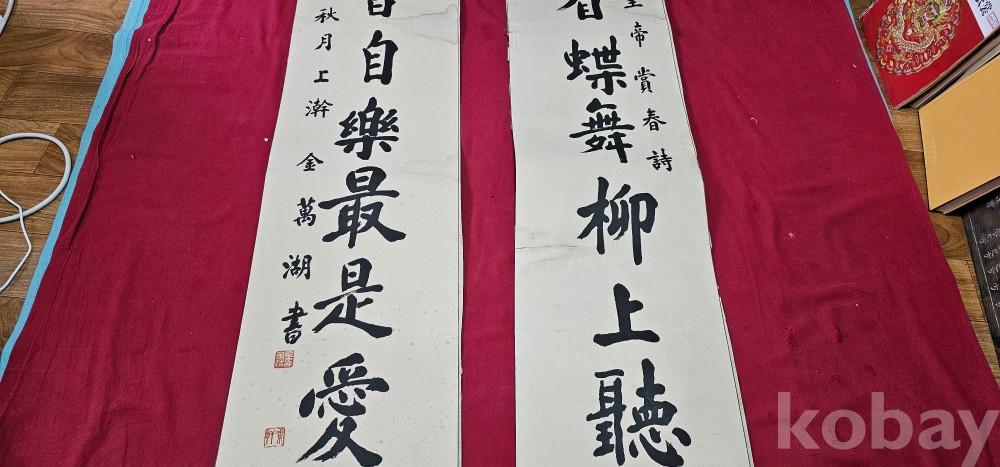 帝賞春詩
蝶舞柳上聽
自樂最是愛
秋月上澣 金萬湖書
kobay